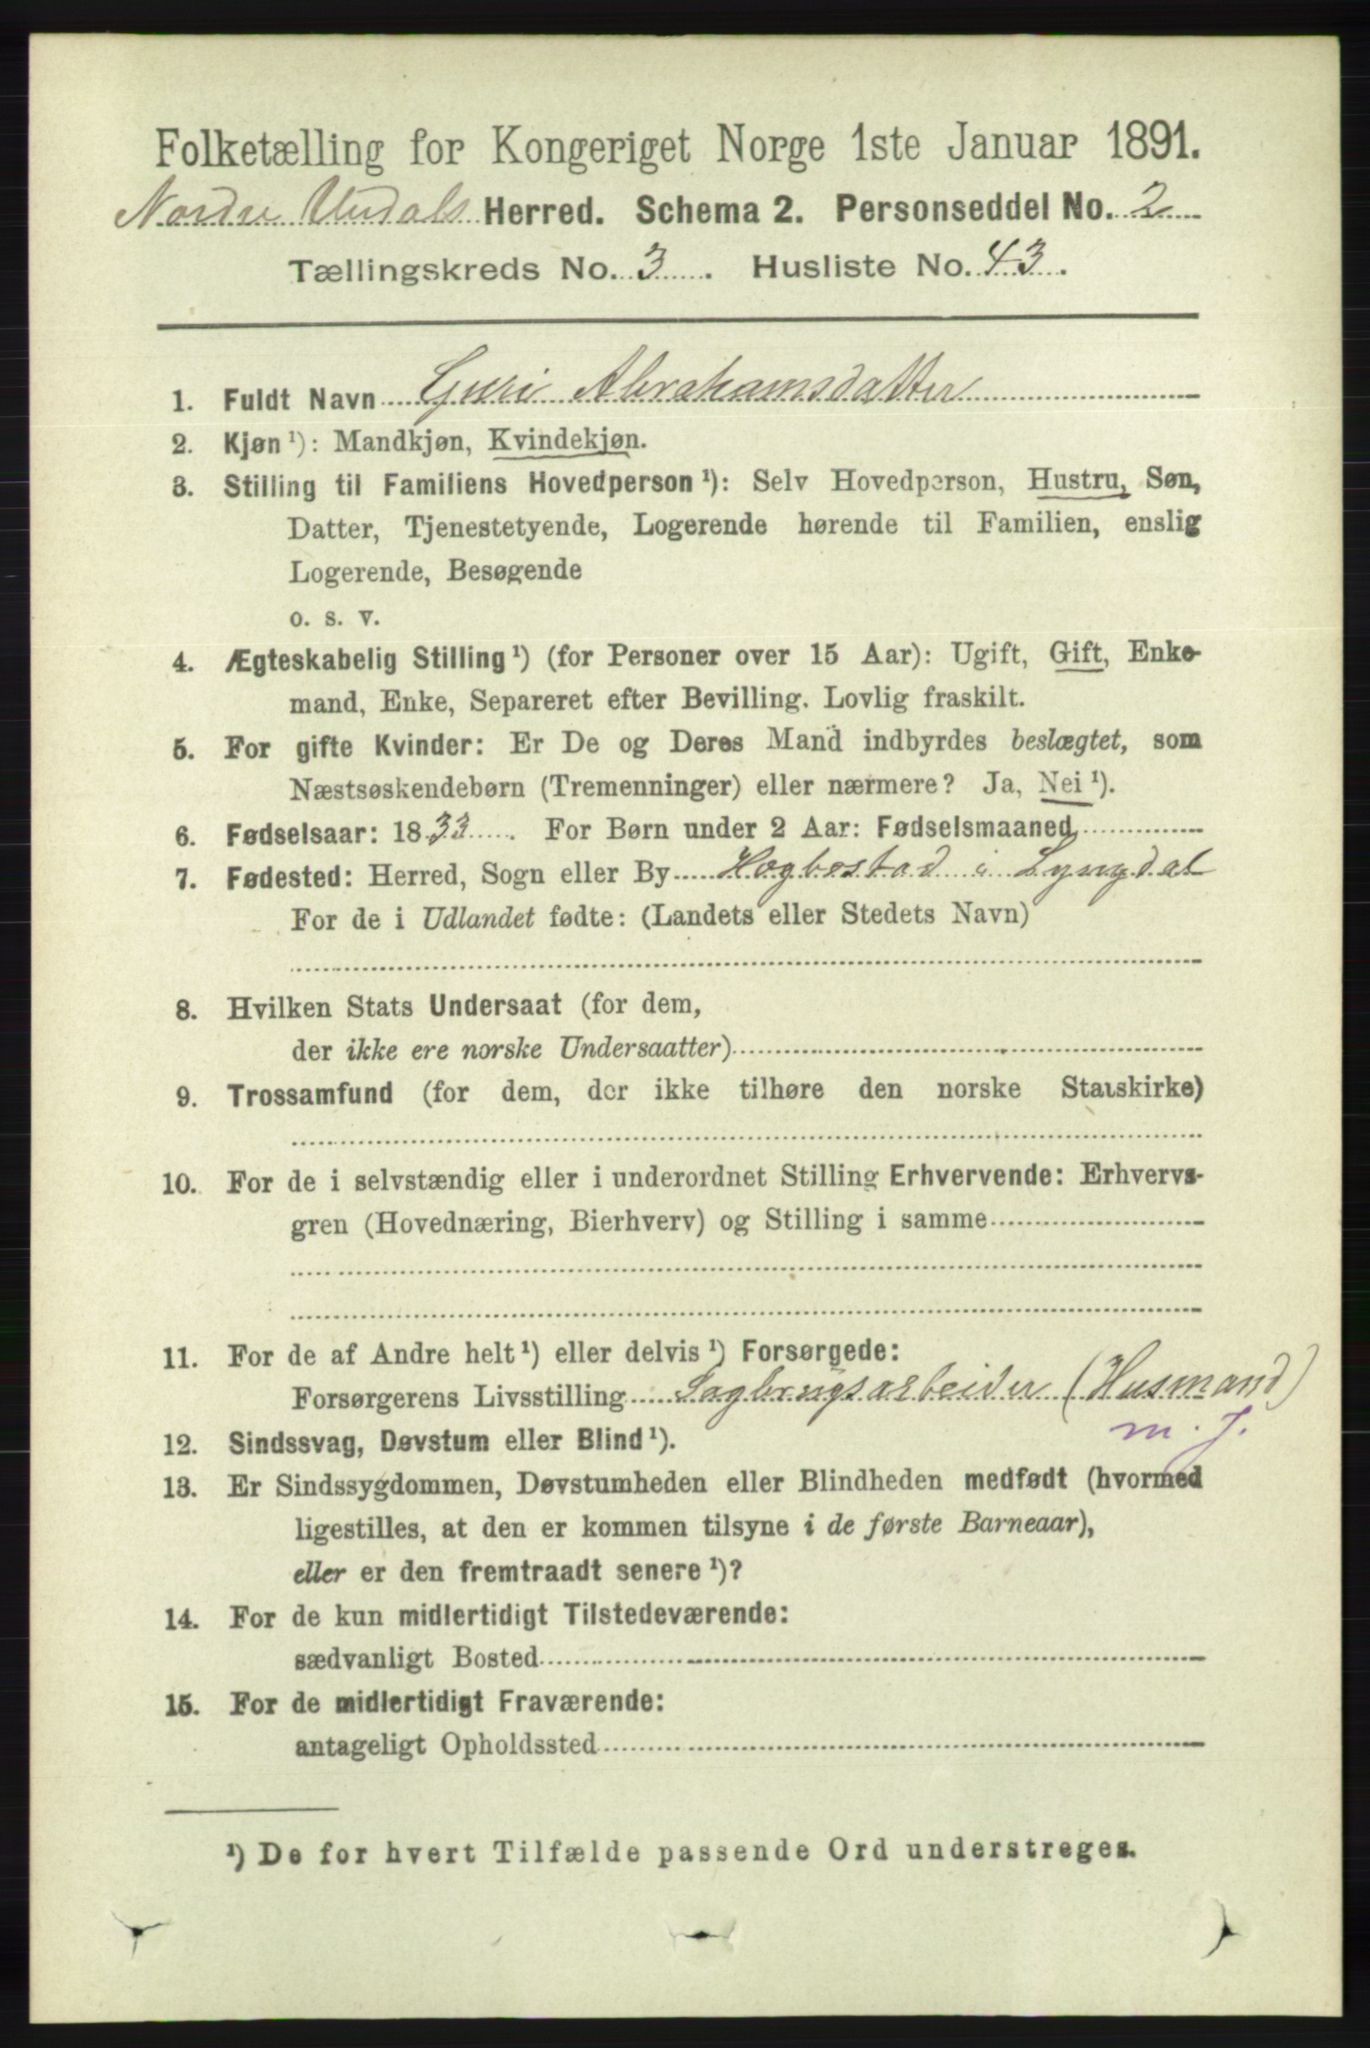 Folketælling for Kongeriget Norge 1ste Januar 1891.
Nordre Undals Herred. Schema 2. Personseddel No. 2
Tællingskreds No. 3. Husliste No. 43.
1. Fuldt Navn Guri Abrahamsdatter
2. Kjøn ¹): Mandkjøn, Kvindekjøn.
3. Stilling til Familiens Hovedperson ¹): Selv Hovedperson, Hustru, Søn,
Datter, Tjenestetyende, Logerende hørende til Familien, enslig
Logerende, Besøgende
o. s. v.
4. Ægteskabelig Stilling ¹) (for Personer over 15 Aar): Ugift, Gift, Enke-
mand, Enke, Separeret efter Bevilling. Lovlig fraskilt.
5. For gifte Kvinder: Er De og Deres Mand indbyrdes beslægtet, som
Næstsøskendebørn (Tremenninger) eller nærmere? Ja, Nei ¹).
6. Fødselsaar: 1833. For Børn under 2 Aar: Fødselsmaaned
7. Fødested: Herred, Sogn eller By Hægbostad i Lyngdal
For de i Udlandet fødte: (Landets eller Stedets Navn)
8. Hvilken Stats Undersaat (for dem,
der ikke ere norske Undersaatter)
9. Trossamfund (for dem, der ikke tilhøre den norske Statskirke)
10. For de i selvstændig eller i underordnet Stilling Erhvervende: Erhvervs-
gren (Hovednæring, Bierhverv) og Stilling i samme
11. For de af Andre helt ¹) eller delvis ¹) Forsørgede:
Forsørgerens Livsstilling Sagbrugsarbeider (Husmand)
m. J.
12. Sindssvag, Døvstum eller Blind ¹).
13. Er Sindssygdommen, Døvstumheden eller Blindheden medfødt (hvormed
ligestilles, at den er kommen tilsyne i de første Barneaar),
eller er den fremtraadt senere ¹)?
14. For de kun midlertidigt Tilstedeværende:
sædvanligt Bosted
15. For de midlertidigt Fraværende:
antageligt Opholdssted
¹) De for hvert Tilfælde passende Ord understreges.